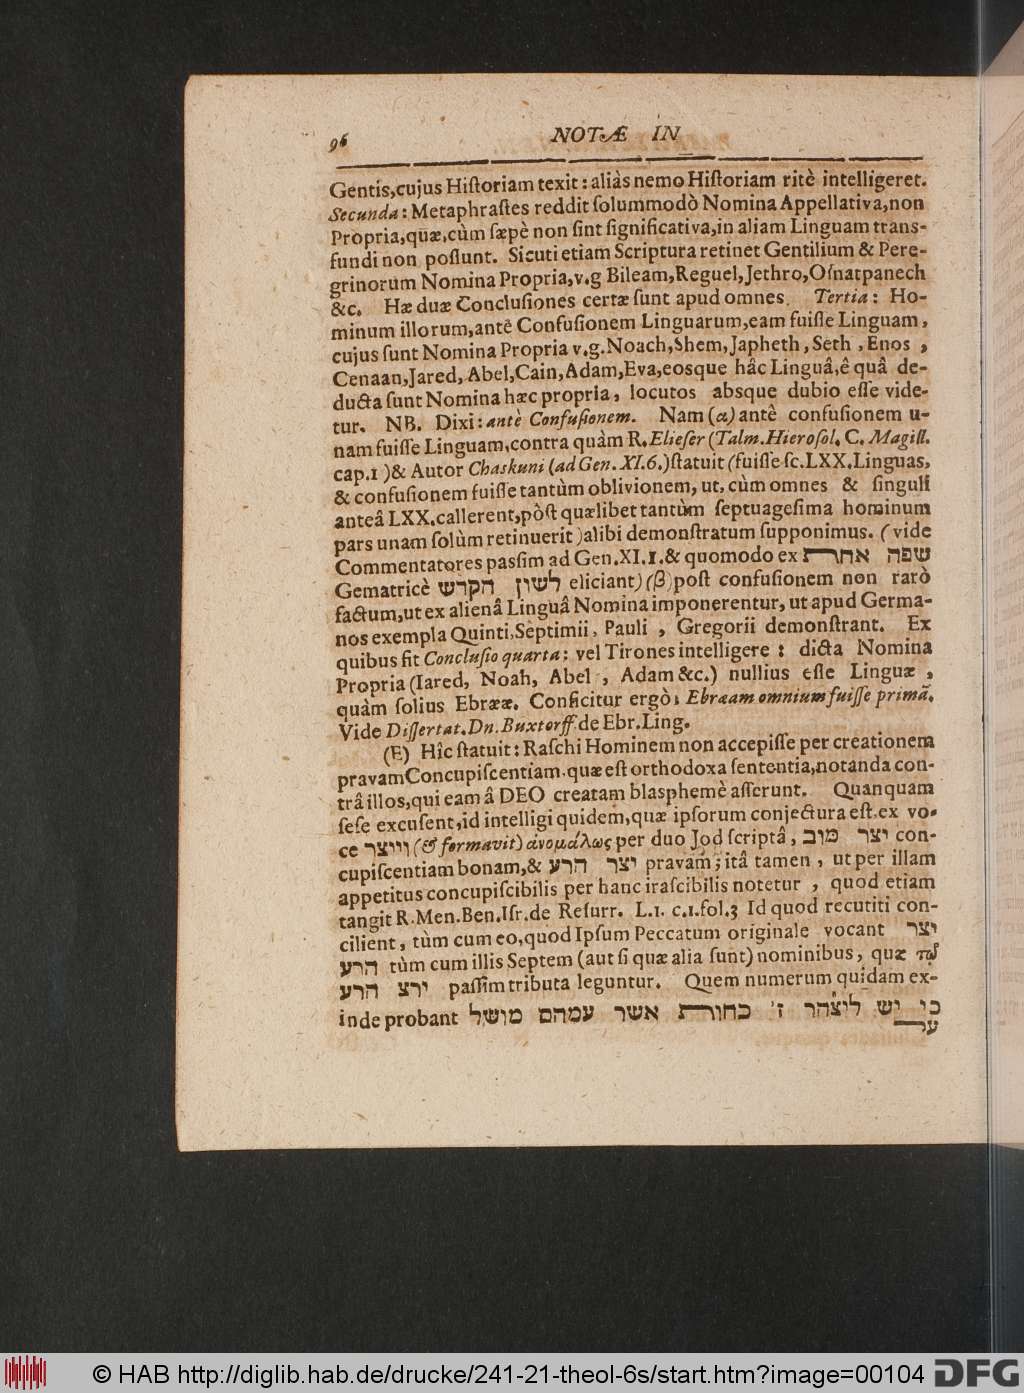 96 NOTÆ IN
Gentis,cujus Hiſtoriam texit : aliàs nemo Hiſtoriam ritè intelligeret.
Secunda : Metaphraſtes reddit ſolummodò Nomina Appellativa,non
Propria,quæ,cùm ſæpè non ſint ſignificativa,in aliam Linguam trans-
fundi non poſſunt. Sicuti etiam Scriptura retinet Gentilium & Pere-
grinorum Nomina Propria,v.g Bileam,Reguel,Jethro,Oſnatpanech
&c. Hæ duæ Concluſiones certæ ſunt apud omnes. Tertia : Ho-
minum illorum,antè Confuſionem Linguarum,eam fuiſſe Linguam,
cujus ſunt Nomina Propria v.g.Noach,Shem,Japheth,Seth,Enos,
Cenaan,Jared,Abel,Cain,Adam,Eva,eosque hâc Linguâ,ê quâ de-
ducta ſunt Nomina hæc propria, locutos absque dubio eſſe vide-
tur. NB. Dixi : antè Confuſionem. Nam (α) antè confuſionem u-
nam fuiſſe Linguam,contra quàm R.Elieſer (Talm.Hieroſol. C. Magill.
cap.1 )& Autor Chaskuni (ad Gen. XI.6.)ſtatuit (fuiſſe ſc.LXX.Linguas,
& confuſionem fuiſſe tantùm oblivionem, ut, cùm omnes & ſinguli
anteâ LXX.callerent,pòſt quælibet tantùm ſeptuageſima hominum
pars unam ſolùm retinuerit )alibi demonſtratum ſupponimus. ( vide
Commentatores paſſim ad Gen.XI.1.& quomodo ex שפה אחרת
Gematricè לשון הקרש eliciant) (β) poſt confuſionem non rarò
factum,ut ex alienâ Linguâ Nomina imponerentur, ut apud Germa-
nos exempla Quinti,Septimii, Pauli, Gregorii demonſtrant. Ex
quibus fit Concluſio quarta : vel Tirones intelligere : dicta Nomina
Propria (Iared, Noah, Abel, Adam &c.) nullius eſſe Linguæ,
quàm ſolius Ebrææ. Conficitur ergò: Ebræam omnium fuiſſe primã.
Vide Diſſertat.Dn.Buxtorff.de Ebr.Ling.
(E) Hîc ſtatuit : Raſchi Hominem non accepiſſe per creationem
pravam Concupiſcentiam.quæ eſt orthodoxa ſententia,notanda con-
trâ illos,qui eam â DEO creatam blaſphemè aſſerunt. Quanquam
ſeſe excuſent,id intelligi quidem,quæ ipſorum conjectura eſt.ex vo-
ce וייצר (& formavit) ἀνομάλως per duo Jod ſcriptâ, יצר טוב con-
cupiſcentiam bonam,& יצר הרע pravam; itâ tamen, ut per illam
appetitus concupiſcibilis per hanc iraſcibilis notetur, quod etiam
tangit R.Men.Ben.Iſr.de Reſurr. L.1. c.1.fol.3 Id quod recutiti con-
cilient, tùm cum eo,quod Ipſum Peccatum originale vocant יצר
הרע tùm cum illis Septem (aut ſi quæ alia ſunt) nominibus, quæ τῷ
ירצ הרע paſſim tributa leguntur. Quem numerum quidam ex-
inde probant כי יש ליצהר ז׳ כחורת אשר עמהם מושל
ער
© HAB http://diglib.hab.de/drucke/241-21-theol-6s/start.htm?image=00104 DFG